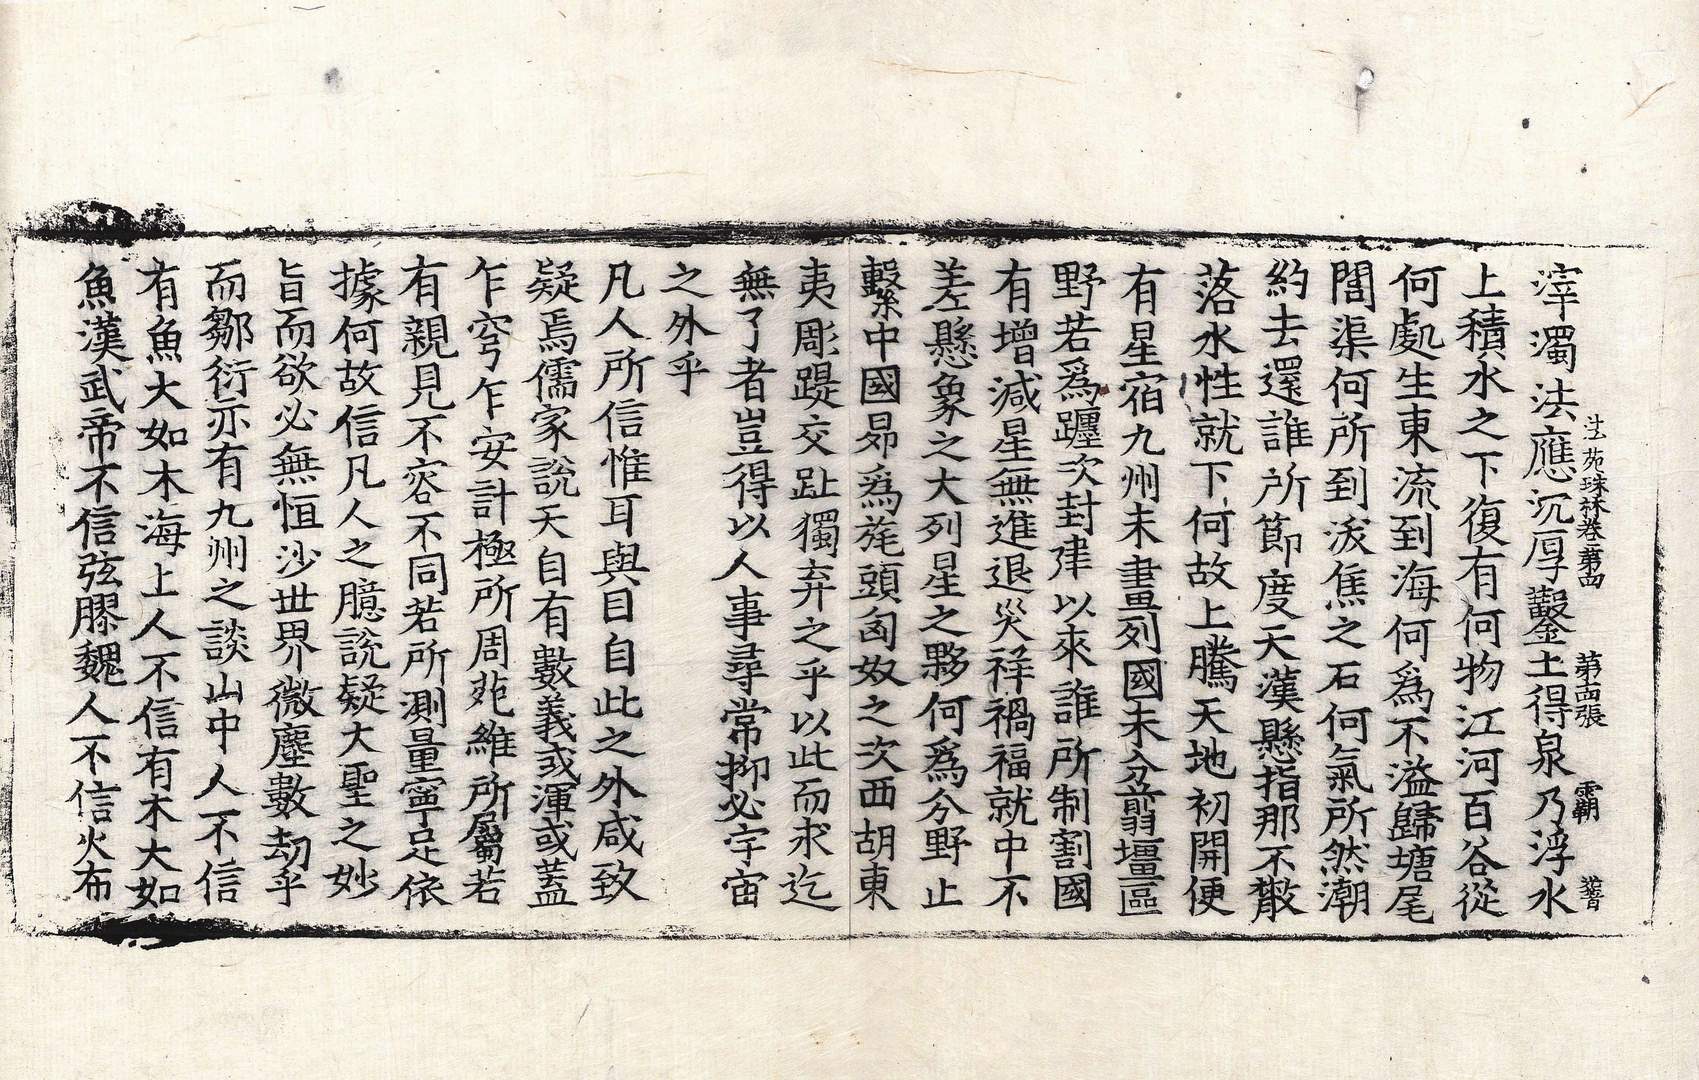 法苑珠林卷第四　第四張　霸
滓濁法應沉厚鑿土得泉乃浮水
上積水之下復有何物江河百谷從
何處生東流到海何爲不溢歸塘尾
閭渠何所到沃焦之石何氣所然潮
約去還誰所節度天漢懸指那不散
落水性就下何故上騰天地初開便
有星宿九州未畫列國未分翦壃區
野若爲躔次封建以來誰所制割國
有增減星無進退災祥禍福就中不
差懸象之大列星之夥何爲分野止
繫中國昴爲旄頭匈奴之次西胡東
夷彫蹏交趾獨弃之乎以此而求迄
無了者豈得以人事尋常抑必宇宙
之外乎
凡人所信惟耳與目自此之外咸致
疑焉儒家說天自有數義或渾或蓋
乍穹乍安計極所周苑維所屬若
有親見不容不同若所測量寧足依
據何故信凡人之臆說疑大聖之妙
旨而欲必無恒沙世界微塵數劫乎
而鄒衍亦有九州之談山中人不信
有魚大如木海上人不信有木大如
魚漢武帝不信弦膠魏人不信火布